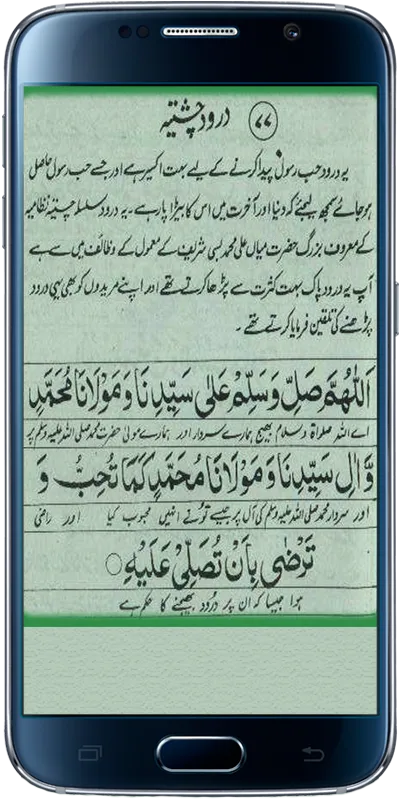 ۷۷ درود چشتیہ
یہ درود حب رسول پیدا کرنے کے لیے بہت اکسیر ہے اور جسے حب رسول حاصل
ہو جائے سمجھ لیجئے کہ دنیا اور آخرت میں اس کا بیڑا پار ہے۔ یہ درود سلسلہ چشتیہ نظامیہ
کے معروف بزرگ حضرت میاں علی محمد بسی شریف کے معمول کے وظائف میں سے ہے
آپ یہ درود پاک بہت کثرت سے پڑھا کرتے تھے اور اپنے مریدوں کو بھی یہی درود
پڑھنے کی تلقین فرمایا کرتے تھے۔
اَللّٰهُمَّ صَلِّ وَسَلِّمْ عَلٰى سَيِّدِنَا وَمَوْلَانَا مُحَمَّدٍ
اے اللہ صلواۃ و سلام بھیج ہمارے سردار اور ہمارے مولی حضرت محمد صلی اللہ علیہ وسلم پر
وَّاٰلِ سَيِّدِنَا وَمَوْلَانَا مُحَمَّدٍ كَمَا تُحِبُّ وَ
اور سردار محمد صلی اللہ علیہ وسلم کی آل پر جیسے تو نے انہیں محبوب کیا اور راضی
تَرْضٰى بِاَنْ تُصَلِّىَ عَلَيْهِ ○
ہوا جیسا کہ ان پر درود بھیجنے کا حکم ہے